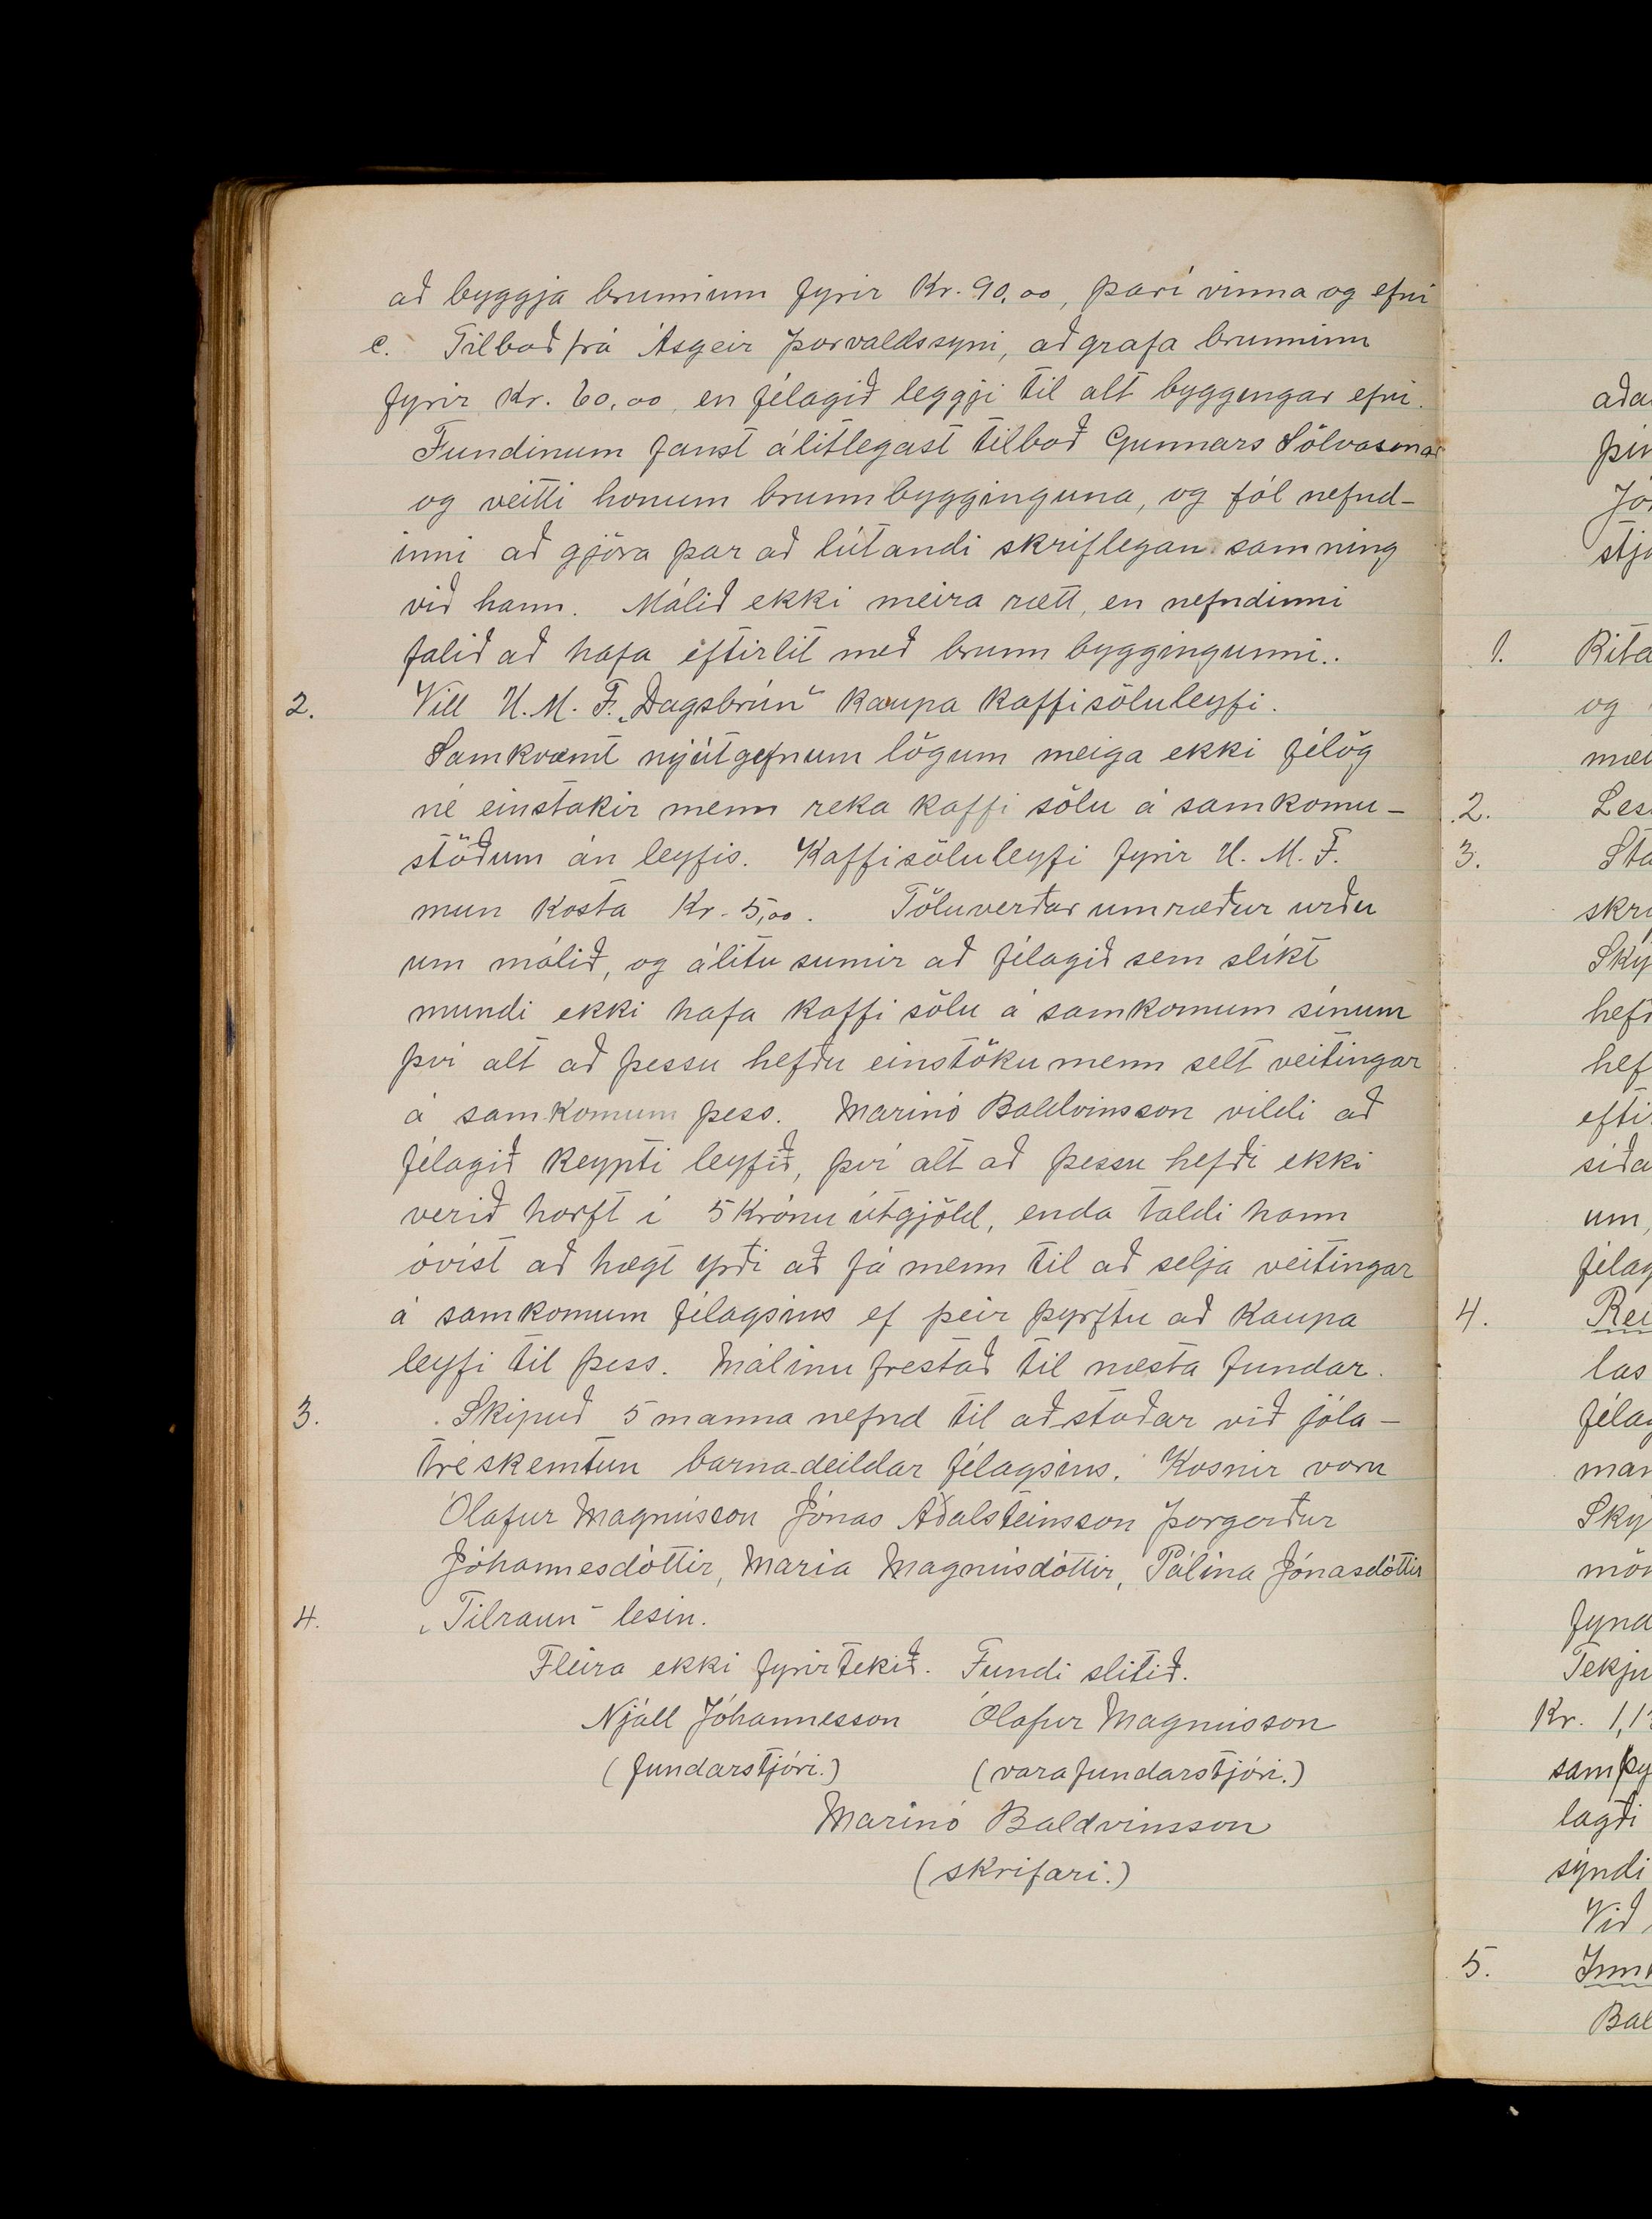 að byggja brunnin fyrir Kr. 90,00, þar í vinna og efni
c. Tilboð frá Ásgeir Þorvaldssyni, að grafa brunninn
fyrir Kr. 60,00, en félagið leggji til alt byggingar efni.
Fundinum fanst álitlegast tilboð Gunnars Sölvasonar
og veitti honum brunnbygginguna, og fól nefnd-
inni að gjöra þar að lútandi skriflegan samning
við hann. Málið ekki meira rætt, en nefndinni
falið að hafa eftirlit með brunn byggingunni..
2. Vill U.M.F. „Dagsbrún“ kaupa kaffisöluleyfi.
Samkvæmt nýútgefnum lögum meiga ekki félög
né einstakir menn reka kaffi sölu á samkomu-
stöðum án leyfis. Kaffisöluleyfi fyrir U. M. F.
mun kosta Kr. 5,00. Töluverðar umræður urðu
um málið, og álitu sumir að félagið sem slíkt
mundi ekki hafa kaffi sölu á samkomum sínum
því alt að þessu hefðu einstöku menn selt veitingar
á samkomum þess. Marinó Baldvinsson vildi að
félagið keypti leyfið, því alt að þessu hefði ekki
verið horft í 5 Krónu útgjöld, enda taldi hann
óvíst að hægt yrði að fá menn til að selja veitingar
á samkomum félagsins ef þeir þyrftu að kaupa
leyfi til þess. Málinu frestað til næsta fundar.
3. Skipuð 5 manna nefnd til aðstoðar við jóla-
tré skemtun barna-deildar félagsins. Kosnir voru
Ólafur Magnússon Jónas Aðalsteinsson Þorgerður
Jóhannesdóttir, María Magnúsdóttir, Pálína Jónasdóttir
4. „Tilraun“ lesin.
Fleira ekki fyrirtekið. Fundi slitið.
Njáll Jóhannesson Ólafur Magnússon
(fundarstjóri.) (varafundarstjóri.)
Marinó Baldvinsson
(skrifari.)
þin
Jó
stj
1. Rita
og
2. Les
3. Sta
skri
Ský
hef
hef
efti
síða
um,
félag
4. Rei
las
félag
man
Ský
fynd
Tekju
Kr. 1,1
samþy
lagði
sýndi
Við
5. Inn
Bal